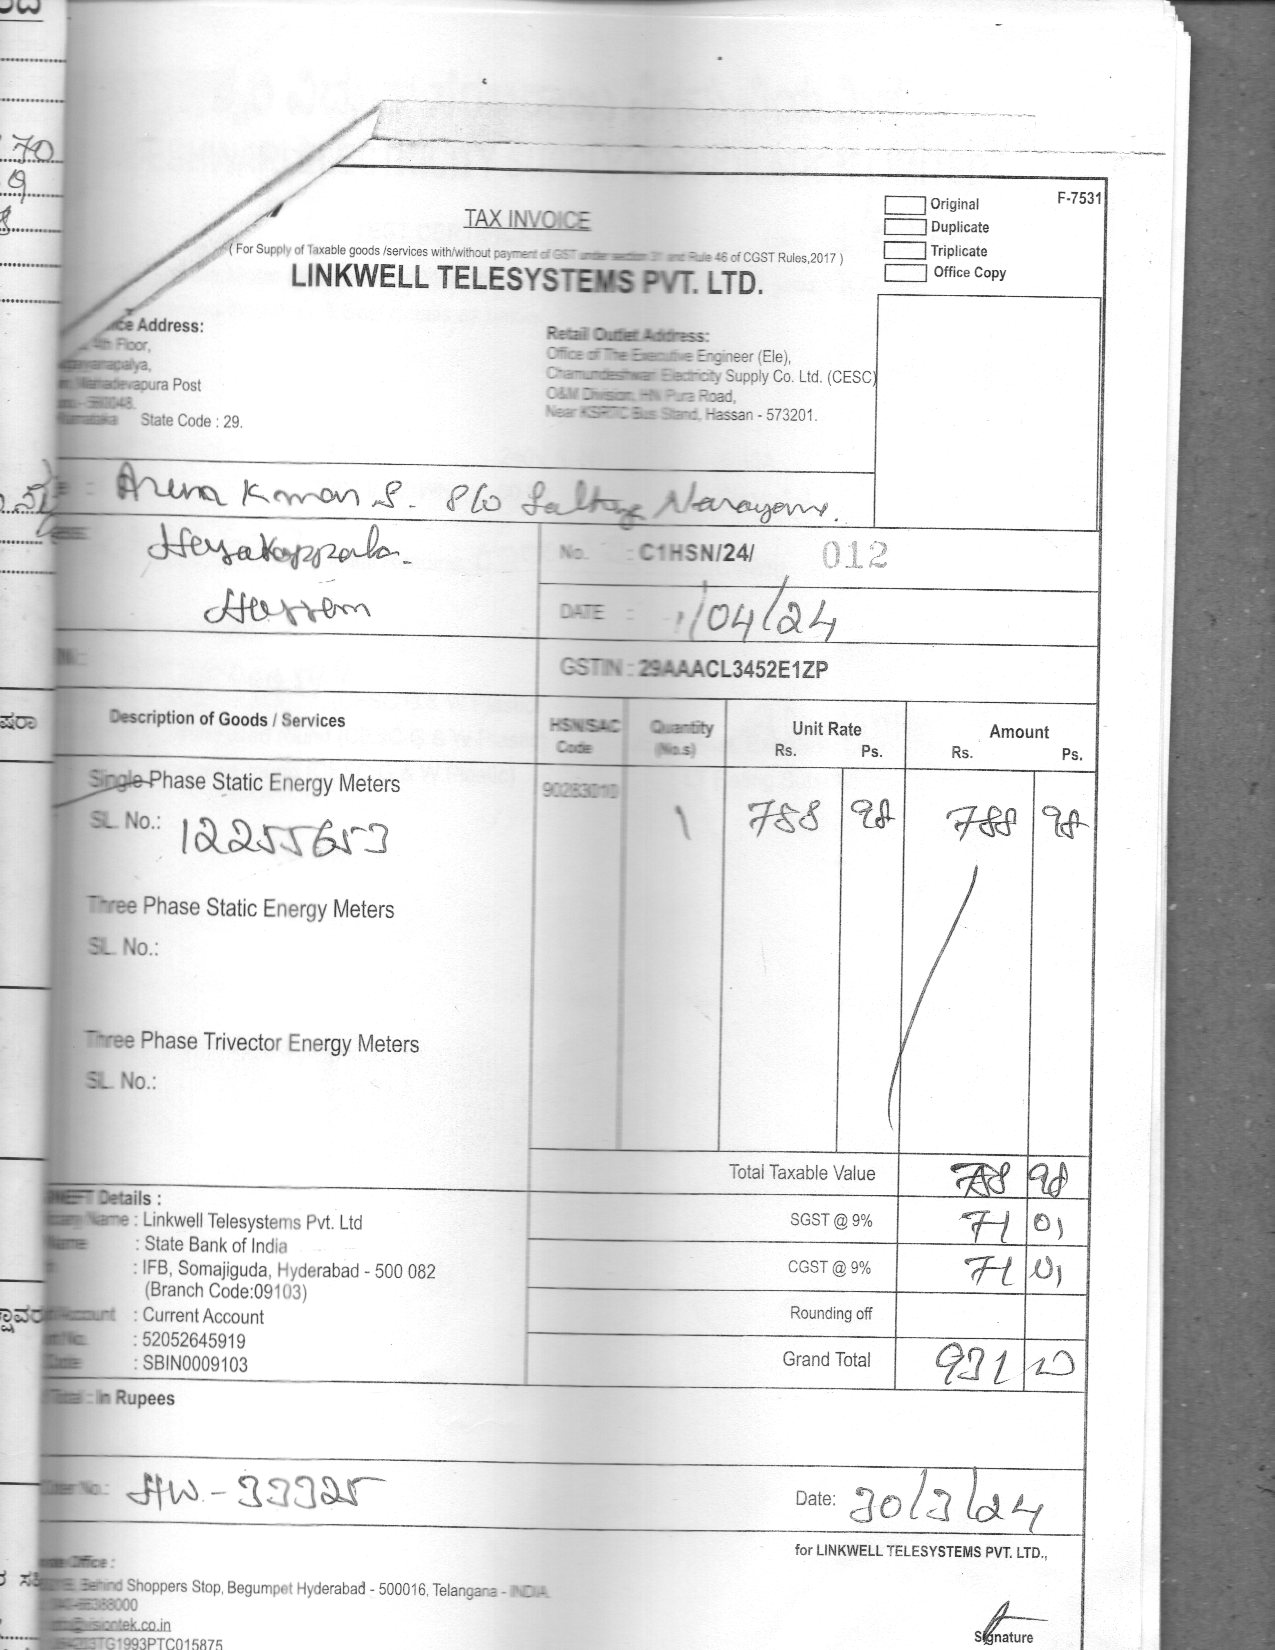 70
9
F-7531
Original
Duplicate
Triplicate
Office Copy
TAX INVOICE
( For Supply of Taxable goods /services with/without payment of GST under section 31 and Rule 46 of CGST Rules,2017 )
LINKWELL TELESYSTEMS PVT. LTD.
Address:
4th Floor,
Mahadevapura Post
State Code : 29.
Retail Outlet Address:
Office of The Executive Engineer (Ele),
Chamundeshwari Electricity Supply Co. Ltd. (CESC)
O&M Division, HN Pura Road,
Near KSRTC Bus Stand, Hassan - 573201.
: Aruna Kumar S. S/o Narayana.
No. : C1HSN/24/ 012
DATE : 1/04/24
GSTIN : 29AAACL3452E1ZP
Description of Goods / Services
HSN/SAC Code
Quantity (No.s)
Unit Rate
Rs. Ps.
Amount
Rs. Ps.
Single Phase Static Energy Meters 90283010 1 788 98 788 98
SL. No.: 12255653
Three Phase Static Energy Meters
SL. No.:
Three Phase Trivector Energy Meters
SL. No.:
Total Taxable Value 788 98
SGST @ 9% 71 01
CGST @ 9% 71 01
Rounding off
Grand Total 931
Details :
Name : Linkwell Telesystems Pvt. Ltd
Name : State Bank of India
: IFB, Somajiguda, Hyderabad - 500 082
(Branch Code:09103)
Account : Current Account
No. : 52052645919
Code : SBIN0009103
Total : In Rupees
No.: HW-33325
Date: 30/3/24
for LINKWELL TELESYSTEMS PVT. LTD.,
Office :
Behind Shoppers Stop, Begumpet Hyderabad - 500016, Telangana - INDIA
Signature